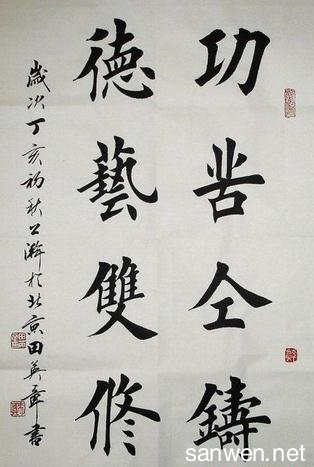 功苦仝鑄
德藝雙修
歲次丁亥初秋於北京田英章書
sanwen.net